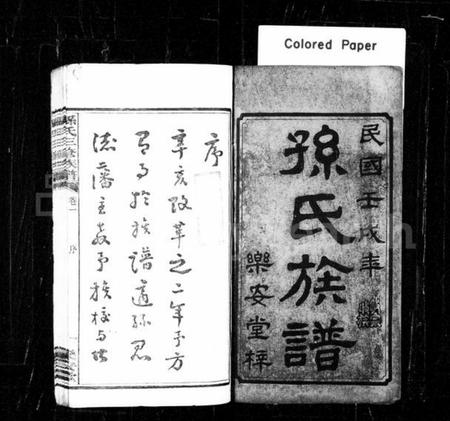 Colored Paper
民國壬戌年
孫氏族譜
樂安堂梓
序
辛亥改革之二年予方
有事於族譜適孫君
德藩主友予族校与诸
孫氏三修族譜
卷一
序